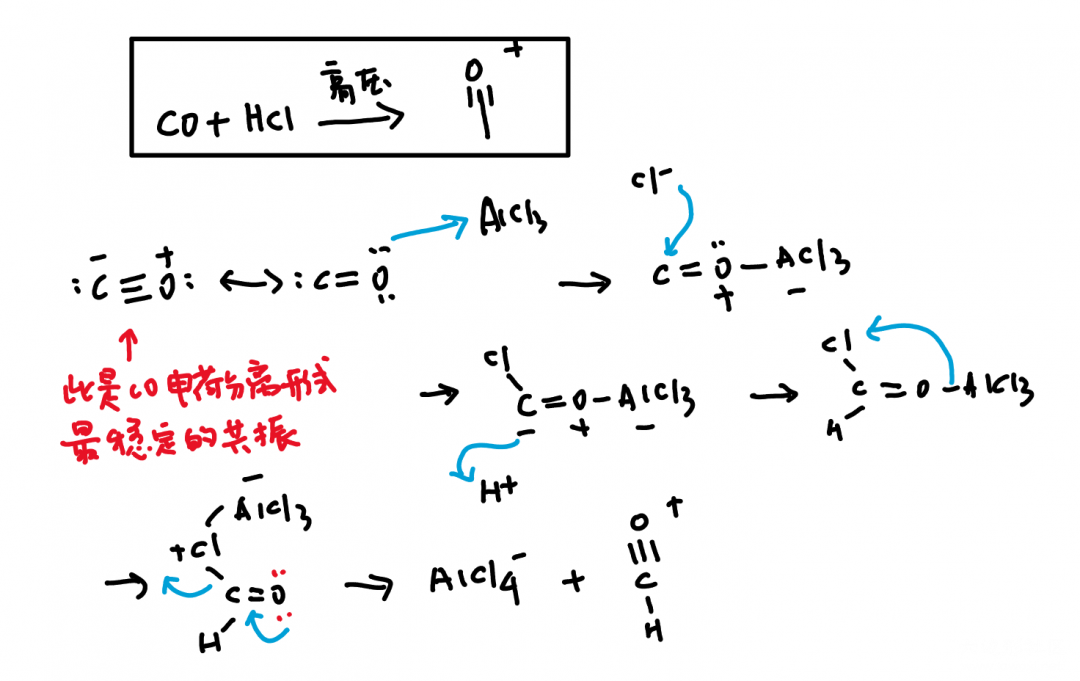 CO + HCl 高压→ O⁺
:C⁻≡O⁺: ↔ :C=Ö: AlCl3 → Cl⁻ C=Ö⁺—AlCl3⁻
此是CO电荷分离形式
最稳定的共振
→ Cl C⁻=O⁺—AlCl3⁻ H+ → Cl C H =O—AlCl3
→ AlCl3⁻ +Cl C=Ö: H → AlCl4⁻ + O⁺≡C—H